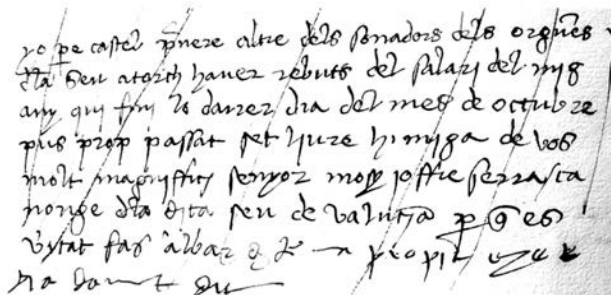 yo pe castel pnere altre dels sonadors dels orguens
dla Seu atorch haver rebuts del salari del mig
any qui fini lo darrer dia del mes de octubre
pus prop passat set liure h miga de vos
molt magniffich senyor mossen joffre serrasca
monge dla dita seu de valencia p q es
vitat fas albar